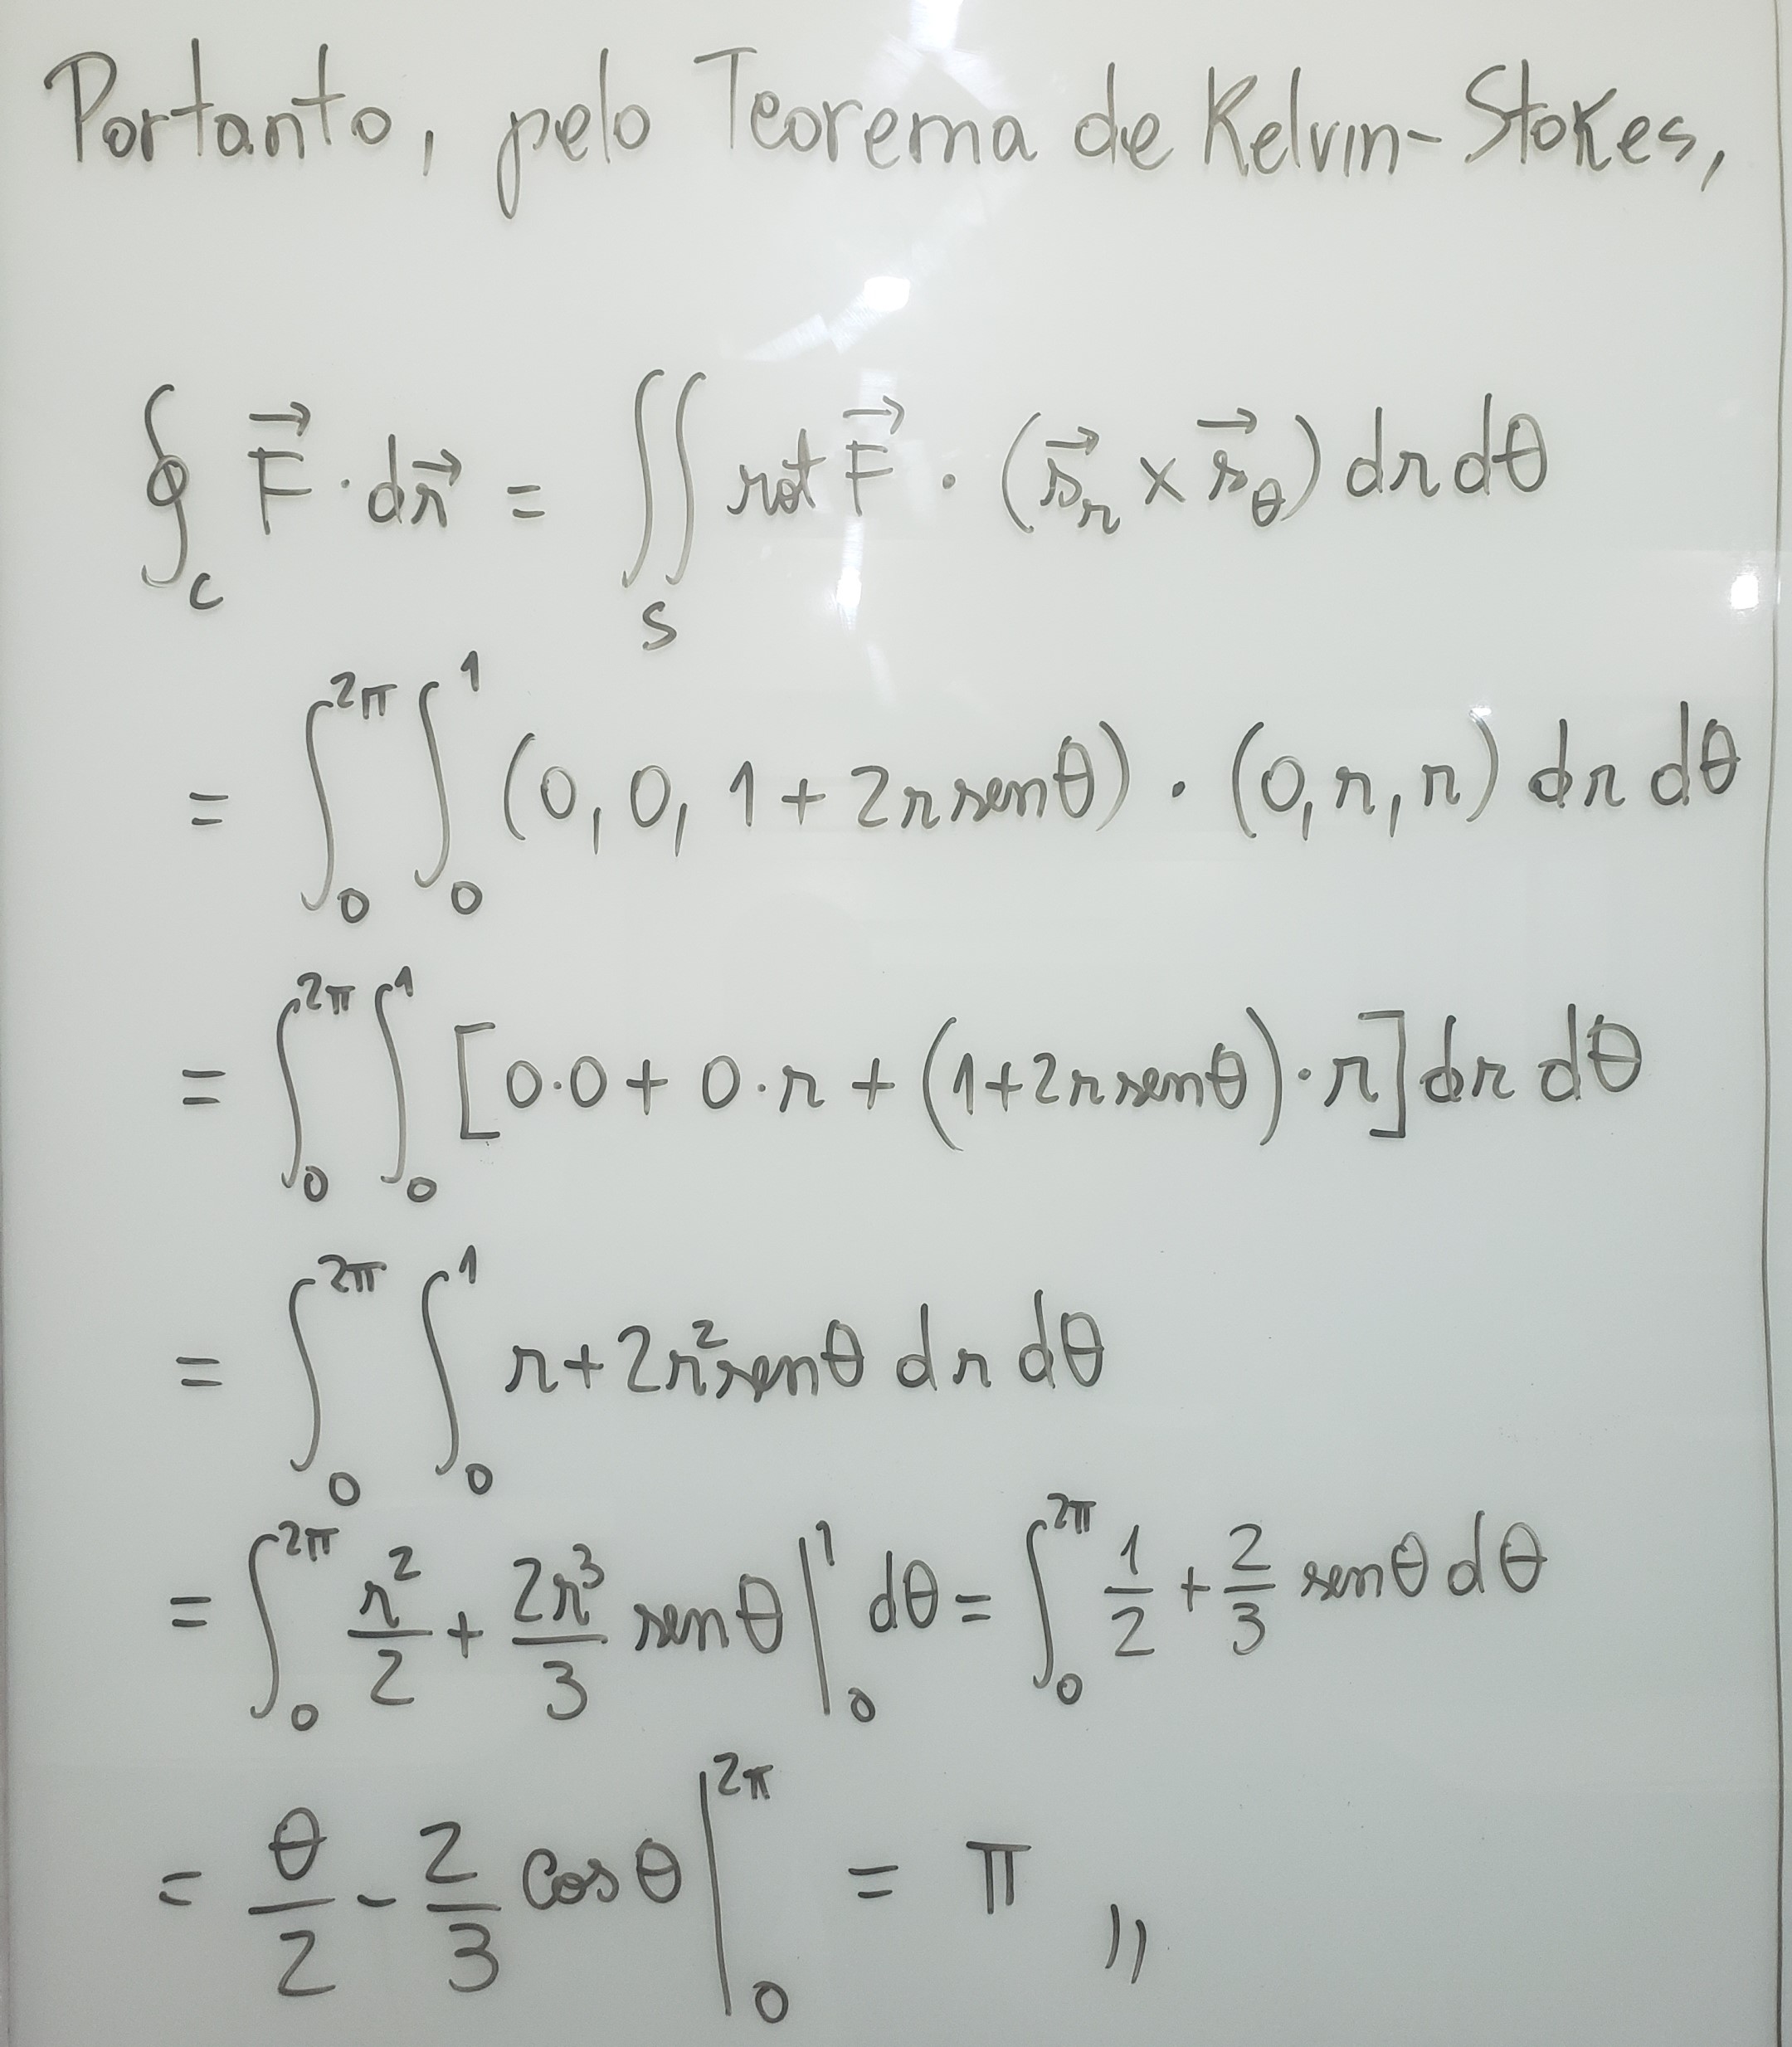 Portanto, pelo Teorema de Kelvin-Stokes,
∮_C F⃗ · dr⃗ = ∬_S rot F⃗ · (s⃗_r × s⃗_θ) dr dθ
= ∫_0^{2π} ∫_0^1 (0, 0, 1 + 2r senθ) · (0, r, r) dr dθ
= ∫_0^{2π} ∫_0^1 [0·0 + 0·r + (1+2r senθ)·r] dr dθ
= ∫_0^{2π} ∫_0^1 r + 2r² senθ dr dθ
= ∫_0^{2π} r²/2 + 2r³/3 senθ |_0^1 dθ = ∫_0^{2π} 1/2 + 2/3 senθ dθ
= θ/2 - 2/3 cosθ |_0^{2π} = π //